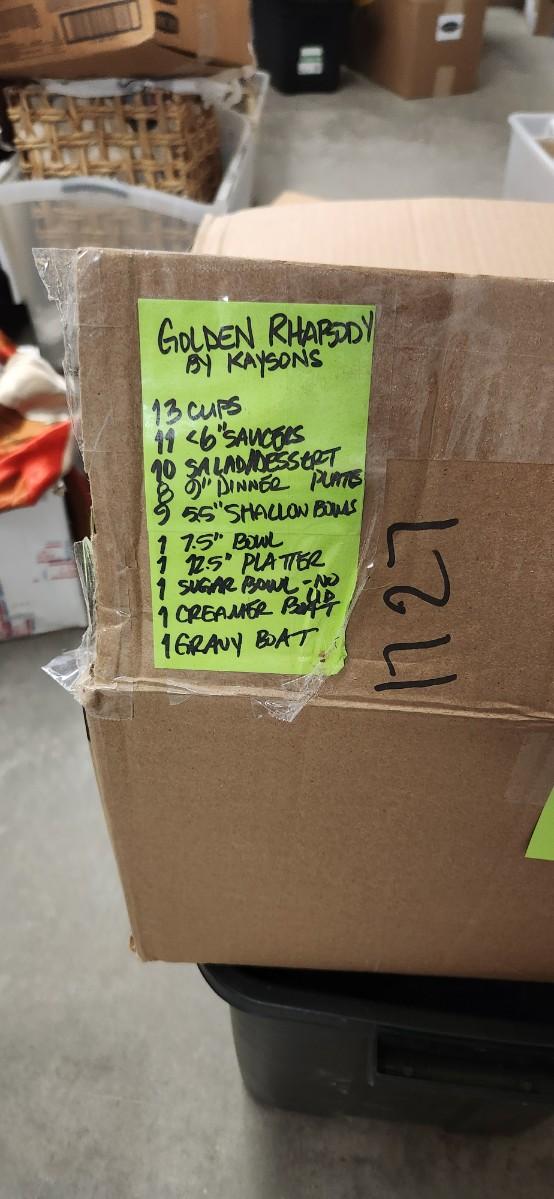 GOLDEN RHAPSODY
BY KAYSONS
13 CUPS
11 <6" SAUCERS
10 SALAD/DESSERT
8 9" DINNER PLATES
9 5.5" SHALLOW BOWLS
1 7.5" BOWL
1 12.5" PLATTER
1 SUGAR BOWL - NO LID
1 CREAMER
1 GRAVY BOAT
1727